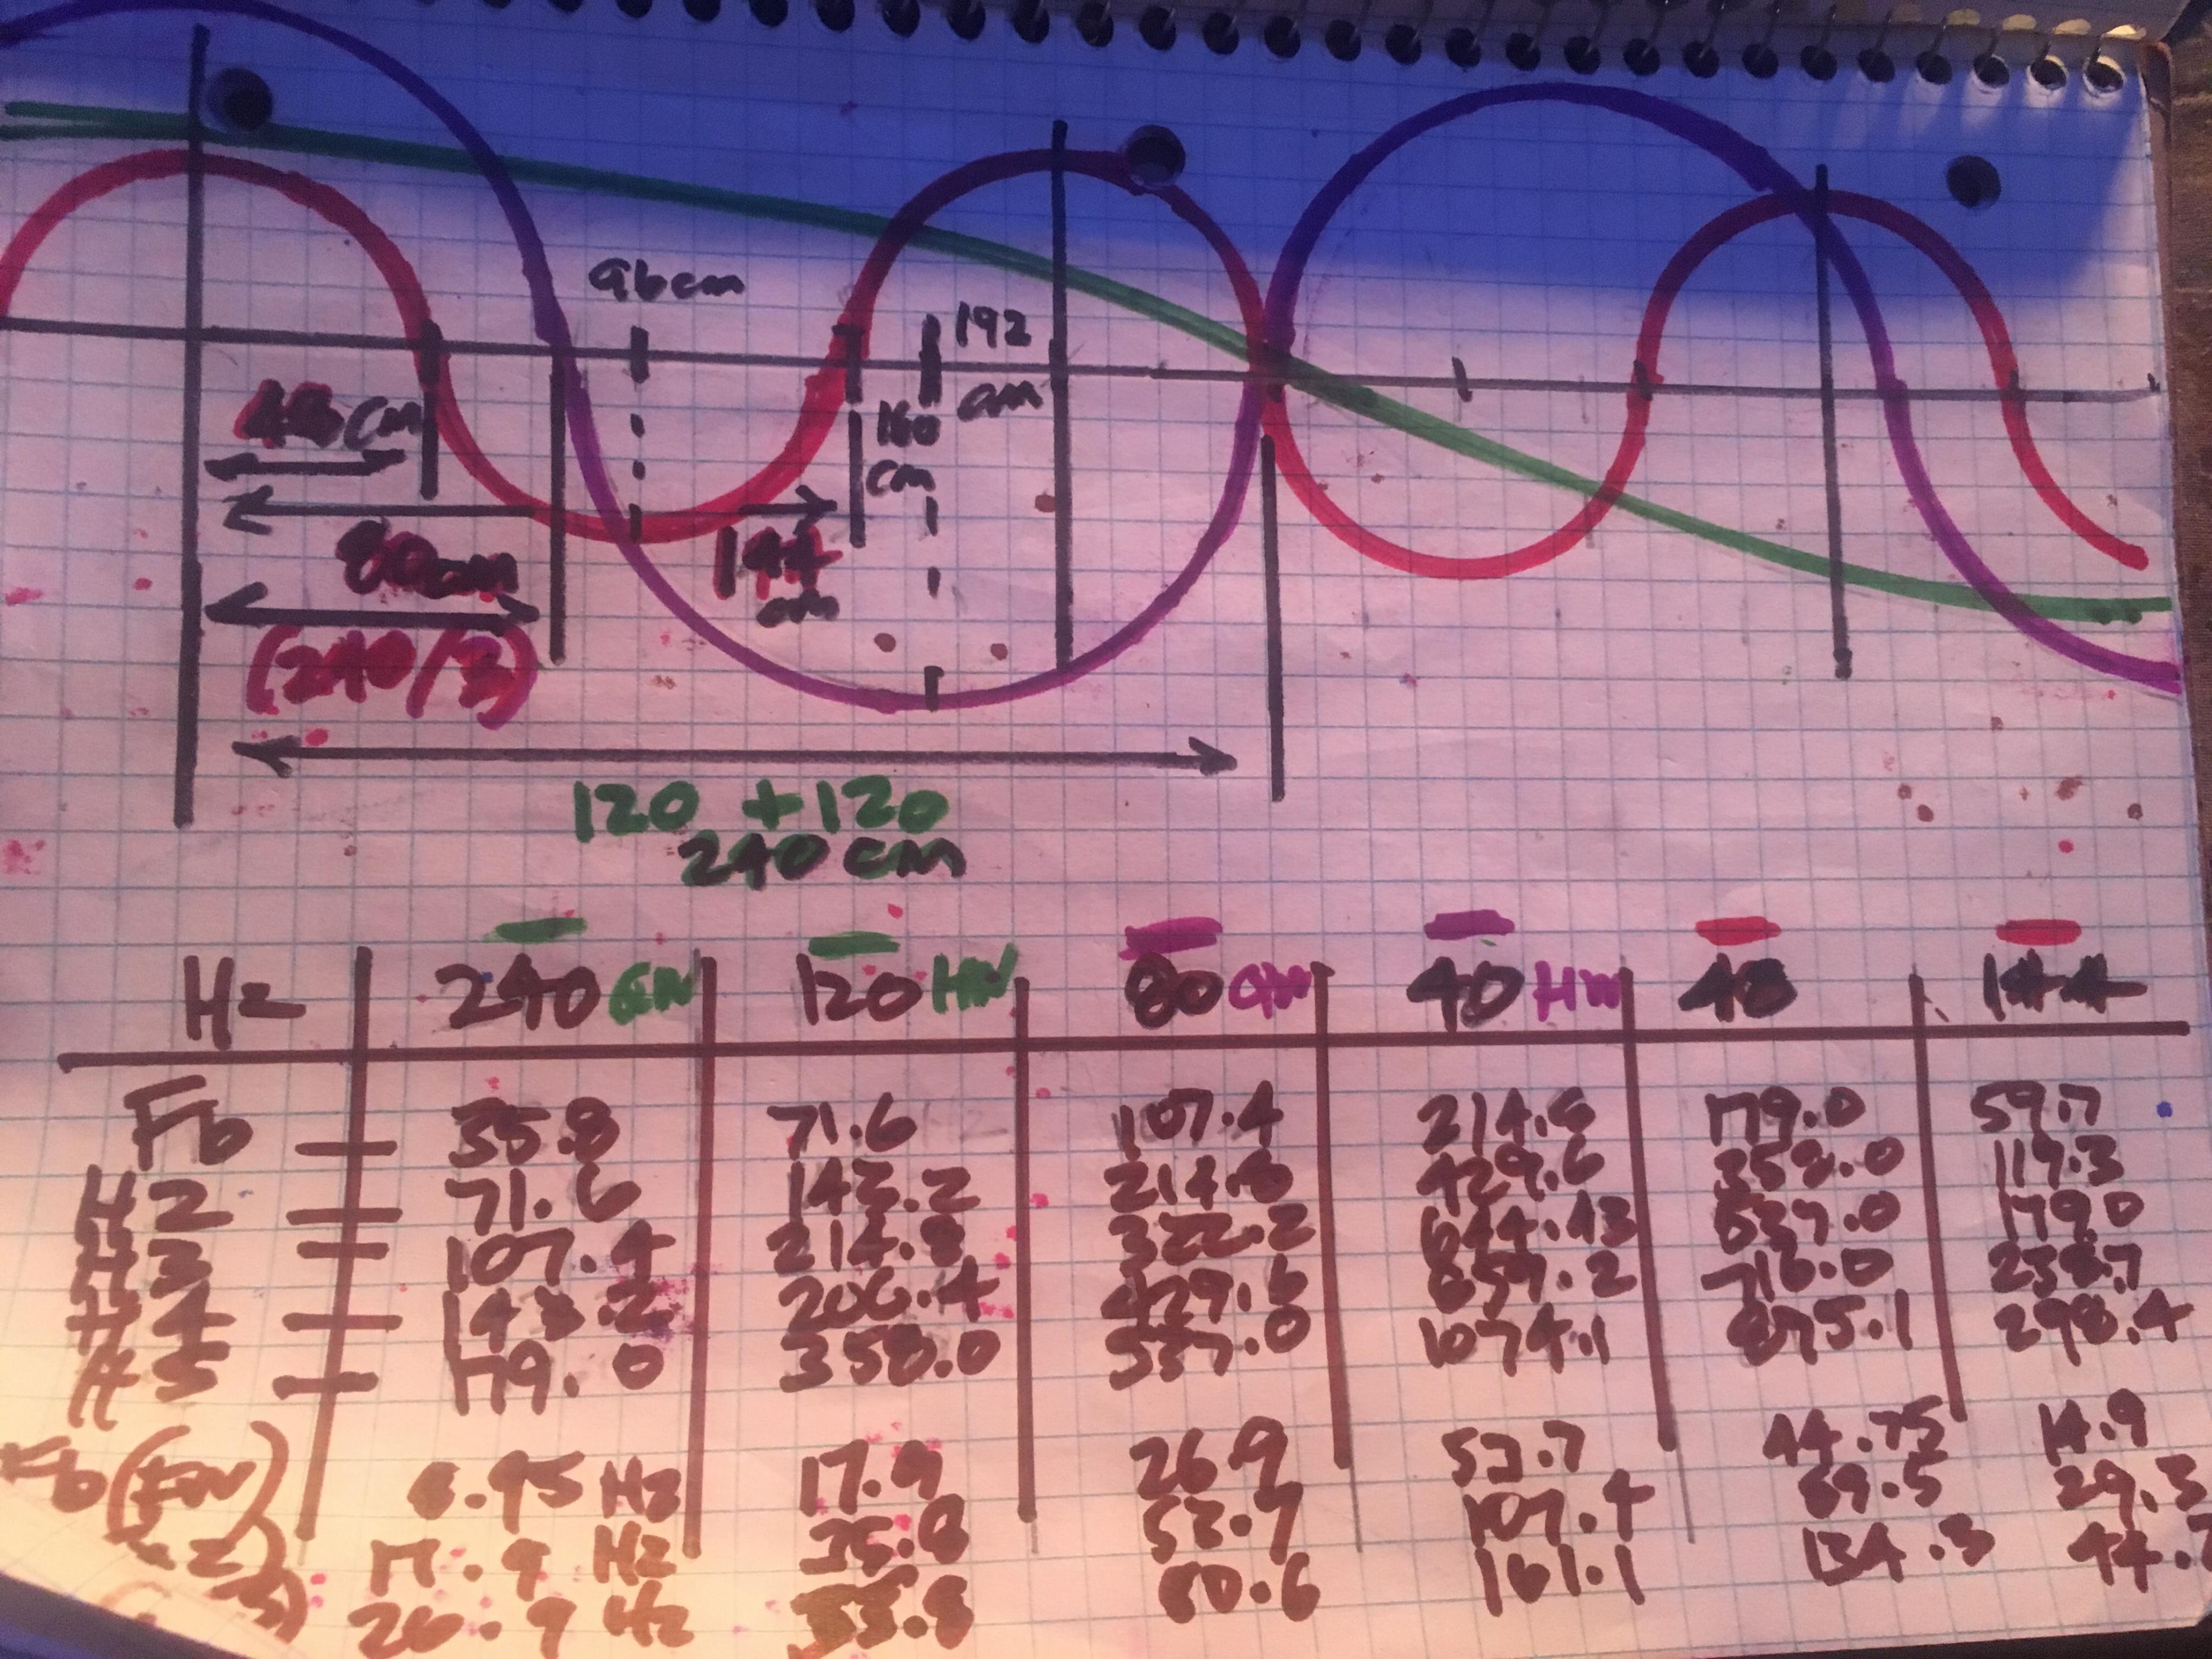 96cm
192
cm
48cm
160
cm
80cm
144
cm
(240/3)
120 + 120
240 cm
Hz 240 QW 120 HW 80 QW 40 HW 48 144
Fb 35.8 71.6 107.4 214.8 179.0 59.7
H2 71.6 143.2 214.8 429.6 358.0 119.3
H3 107.4 214.8 322.2 644.43 537.0 179.0
H4 143.2 286.4 429.6 859.2 716.0 238.7
H5 179.0 358.0 537.0 1074.1 875.1 298.4
Fb 8.95 Hz 17.9 26.9 53.7 44.75 14.9
17.9 Hz 35.8 53.7 107.4 89.5 29.3
26.9 Hz 53.8 80.6 161.1 134.3 44.7